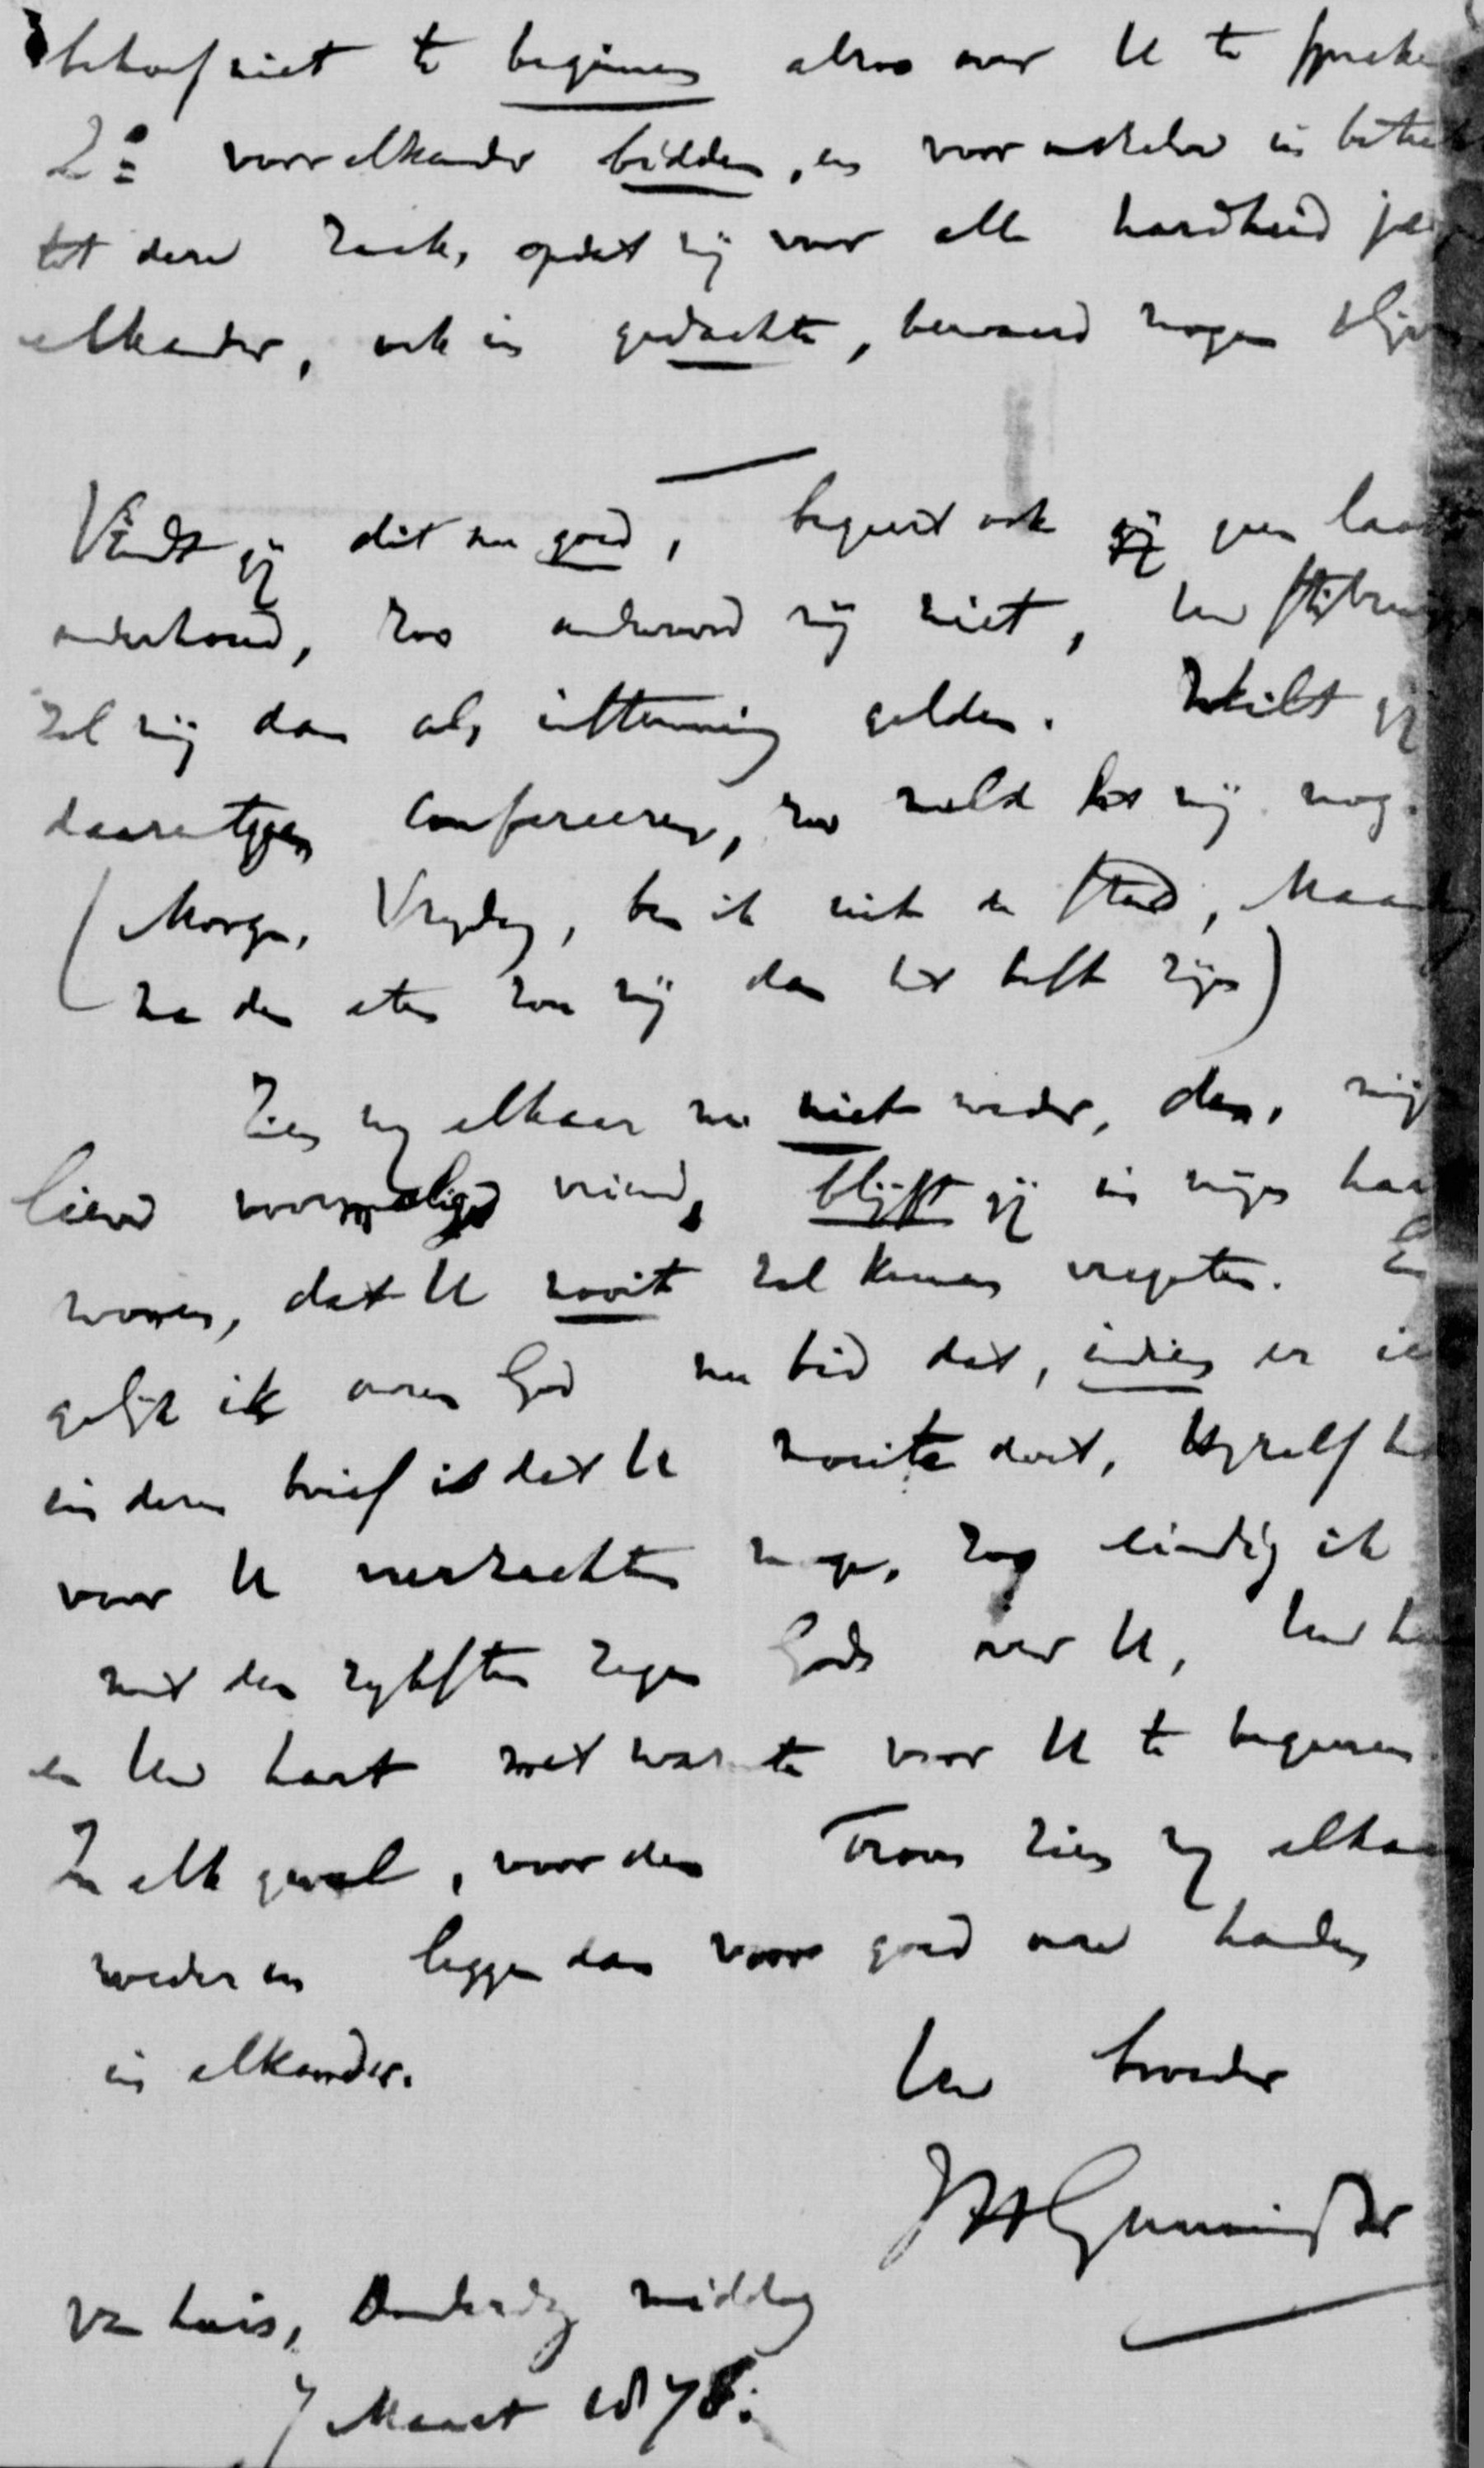 behoef niet te beginnen alzoo over U te spreke
2º voor elkander bidden, en voor onszelve in betrek
tot deze zaak, opdat wij voor alle hardheid je
elkander, ook in gedachte, bewaard mogen blijv
Vindt gij dit nu goed, begeert ook gij geen laat
onderhoud, zoo antwoord mij niet, Uw stilzw
zal mij dan als instemming gelden. Wilt gij
daarentegen confereeren, zoo meld het mij nog.
(Morgen, Vrijdag, ben ik uit de stad, Maan
na den eten zou mij dan het liefst zijn)
Zien wij elkaar nu niet weder, dan, mij
lieve voormalige vriend, blijft gij in mijn har
wonen, dat U nooit zal kunnen vergeten. En
gelijk ik onzen God nu bid dat, indien er ie
in dezen brief is dat U moeite doet, Hijzelf h
voor U verzachten moge, zoo eindig ik
met den rijksten zegen Gods over U, Uw h
en Uw hart met warmte voor U te begeeren.
In elk geval, voor den Troon zien wij elkaa
weder en leggen dan voor goed onze handen
in elkander.
Uw broeder
JHGunning Jr
Van huis, Donderdag middag
7 Maart 1878.